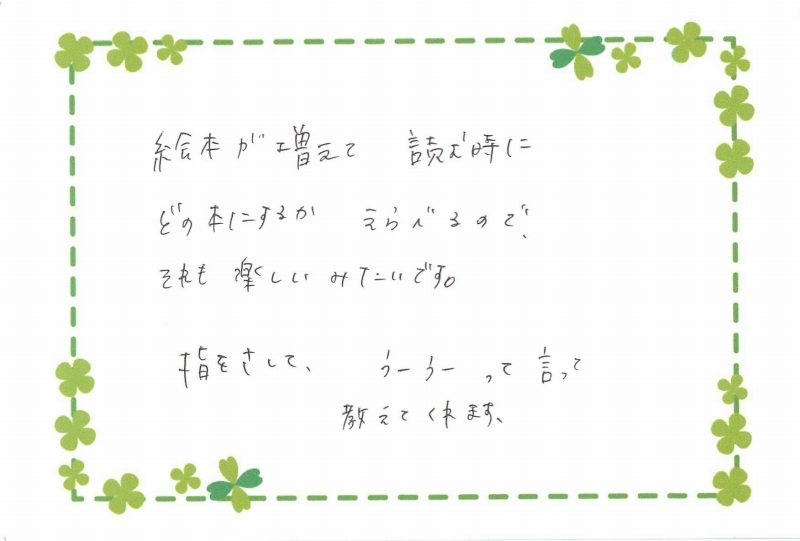 絵本が増えて 読む時に
どの本にするか えらべるので、
それも楽しいみたいです。
指をさして、 うーうーって言って
教えてくれます、